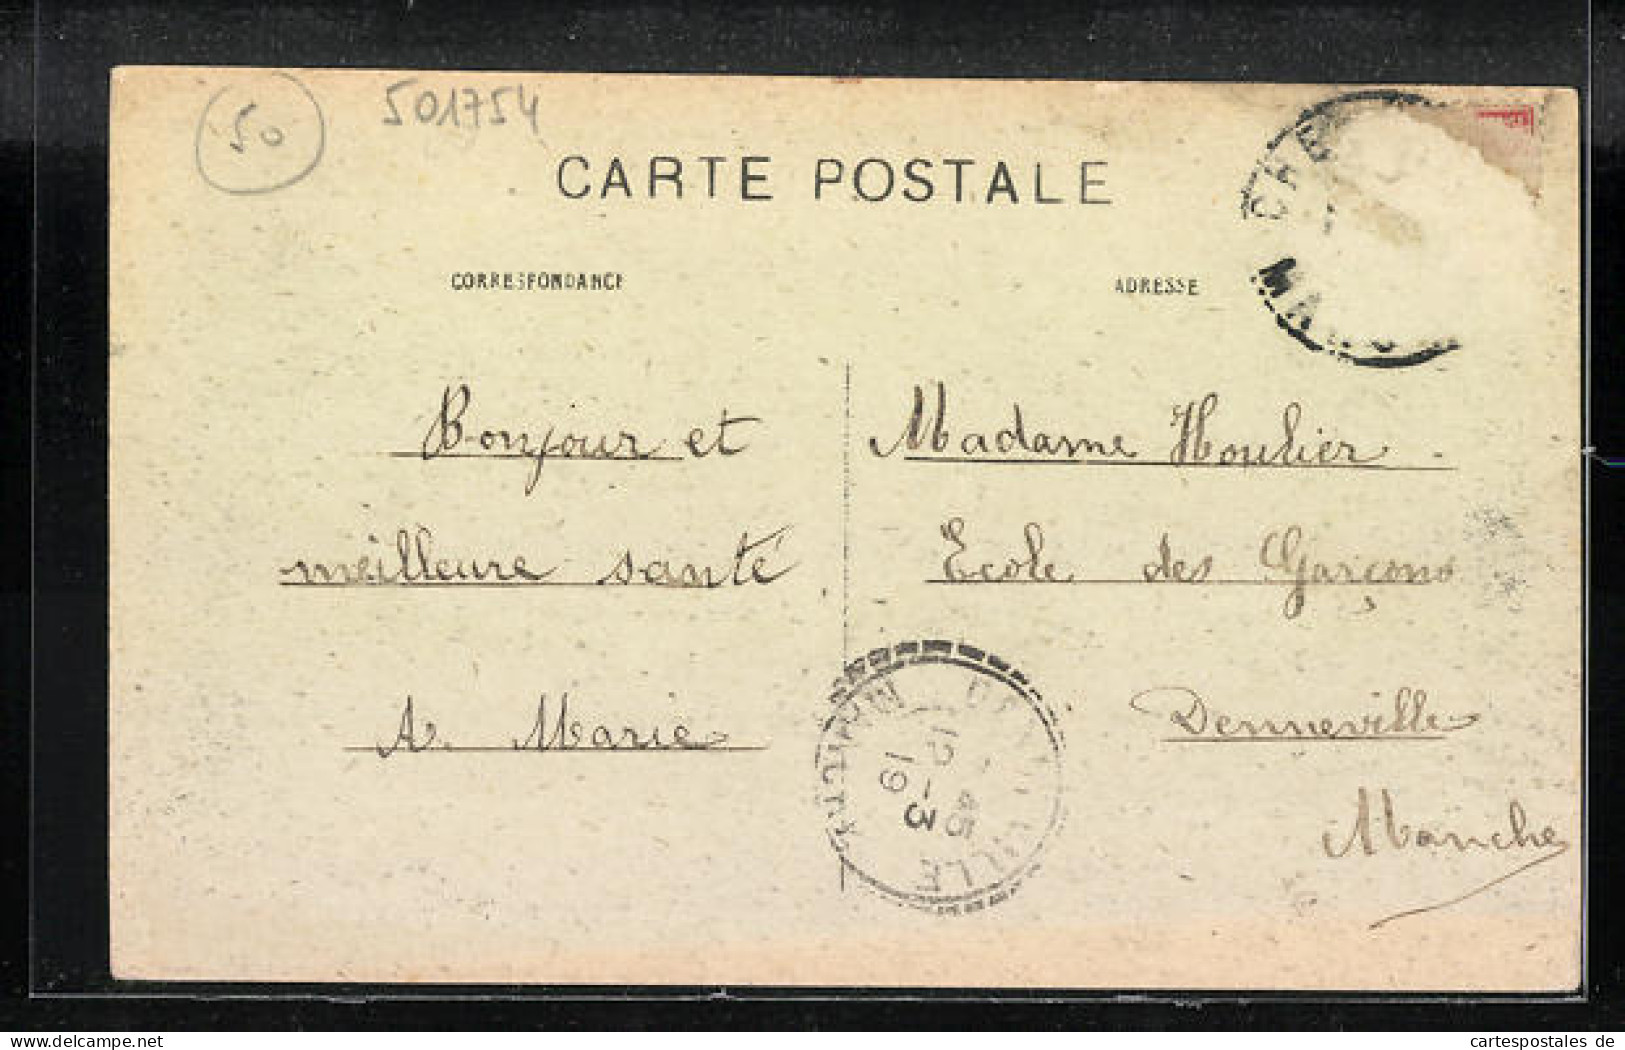 50
501754
CARTE POSTALE
CORRESPONDANCE
ADRESSE
Bonjour et
meilleure santé
A. Marie
Madame Houlier
École des Garçons
Denneville
Manche
12 - 3
45
19
cartespostales de